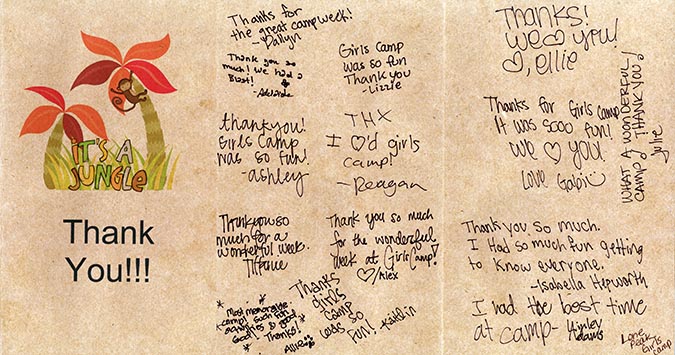 IT'S A
JUNGLE
Thank
You!!!
Thanks for
the great camp week!
Thank you so
much! we had a
Blast!
thankyou!
Girls Camp
was so fun!
-ashley
Thankyou so
much for a
wonderful week.
Most memorable
camp! Such fun
goodies & good
Thanks!
Allie
Girls Camp
was so fun
Thank you
-Lizzie
THX
I ♡'d girls
camp!
-Reagan
Thank you so much
for the wonderful
week at Girls Camp!
♡/Alex
Thanks
Girls
Camp
was so
fun! -Kaitlin
Thanks!
we ♡ you!
♡, ellie
Thanks for Girls Camp
It was sooo fun!
we ♡ you!
Love Gabi
WHAT A WONDERFUL
CAMP! THANK YOU!
Julie
Thank you so much.
I Had so much fun getting
to know everyone.
-Isabella Hepworth
I had the best time
at camp-
Lone
Peak
Girls
Camp